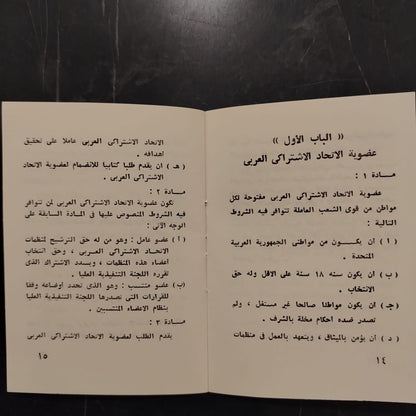 « الباب الأول »
عضوية الاتحاد الاشتراكى العربى
مــادة ١ :
عضوية الاتحاد الاشتراكى العربى مفتوحة لكل
مواطن من قوى الشعب العاملة تتوافر فيه الشروط
التالية :
( أ ) ان يكـــون من مواطنى الجمهورية العربية
المتحدة .
(ب) ان يكون سنه ١٨ سنة على الاقل وله حق
الانتخاب .
(جـ) ان يكون مواطنا صالحا غير مستغل ، ولم
تصدر ضده احكام مخلة بالشرف .
( د ) ان يؤمن بالميثاق ، ويتعهد بالعمل فى منظمات
١٤
الاتحاد الاشتراكى العربى عاملا على تحقيق
اهدافه .
(هـ) ان يقدم طلبا كتابيا للانضمام لعضوية الاتحاد
الاشتراكى العربى .
مــادة ٢ :
تكون عضوية الاتحاد الاشتراكى العربى لمن تتوافر
فيه الشروط المنصوص عليها فى المادة السابقة على
الوجه الآتى :
( أ ) عضو عامل : وهو من له حق الترشيح لتنظيمات
الاتحاد الاشتراكى العربى ، ويكون
أعضاء هذه المنظمات ، ويسدد الاشتراك الذى
تقرره اللجنة التنفيذية العليا .
(ب) عضو منتسب : وهو الذى تحدد أوضاعه وفقا
للقرارات التى تصدرها اللجنة التنفيذية العليا
بنظام الاعضاء المنتسبين .
مــادة ٣ :
يقدم الطلب لعضوية الاتحاد الاشتراكى العربى
١٥